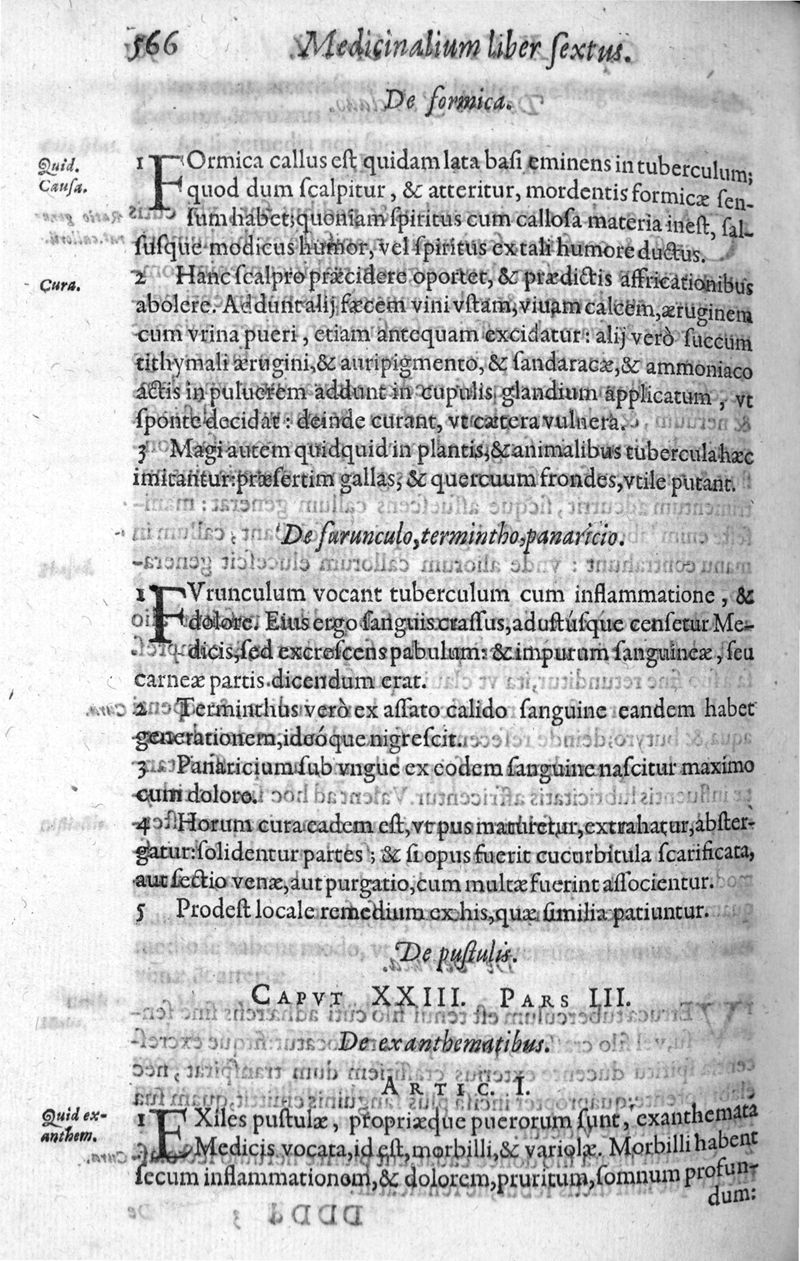 566 Medicinalium liber ſextus.
De formica.
Quid.
Cauſa.
1 FOrmica callus eſt quidam lata baſi eminens in tuberculum;
quod dum ſcalpitur, & atteritur, mordentis formicæ ſen-
ſum habet; quoniam ſpiritus cum calloſa materia ineſt, ſal-
ſuſque modicus humor, vel ſpiritus ex tali humore ductus.
Cura.
2 Hanc ſcalpro præcidere oportet, & prædictis affricationibus
abolere. Addunt alij fæcem vini vſtam, viuam calcem, æruginem
cum vrina pueri, etiam antequam excidatur: alij verò ſuccum
tithymali ærugini, & auripigmento, & ſandaracæ, & ammoniaco
actis in puluerem addunt in cupulis glandium applicatum, vt
ſponte decidat: deinde curant, vt cætera vulnera.
3 Magi autem quidquid in plantis, & animalibus tubercula hæc
imitantur: præſertim gallas, & quercuum frondes, vtile putant.
De furunculo, termintho, panaricio.
1 FVrunculum vocant tuberculum cum inflammatione, &
dolore. Eius ergo ſanguis craſſus, aduſtúſque cenſetur Me-
dicis, ſed excreſcens pabulum: & impurum ſanguineæ, ſeu
carneæ partis dicendum erat.
2 Terminthus verò ex aſſato calido ſanguine eandem habet
generationem, ideóque nigreſcit.
3 Panaricium ſub vngue ex eodem ſanguine naſcitur maximo
cum dolore.
4 Horum cura eadem eſt, vt pus maturetur, extrahatur, abſter-
gatur: ſolidentur partes; & ſi opus fuerit cucurbitula ſcarificata,
aut ſectio venæ, aut purgatio, cum multæ fuerint aſſocientur.
5 Prodeſt locale remedium ex his, quæ ſimilia patiuntur.
De puſtulis.
CAPVT XXIII. PARS III.
De exanthematibus.
ARTIC. I.
Quid ex-
anthem.
1 EXiles puſtulæ, propriæque puerorum ſunt, exanthemata
Medicis vocata, id eſt, morbilli, & variolæ. Morbilli habent
ſecum inflammationem, & dolorem, pruritum, ſomnum profun-
dum: